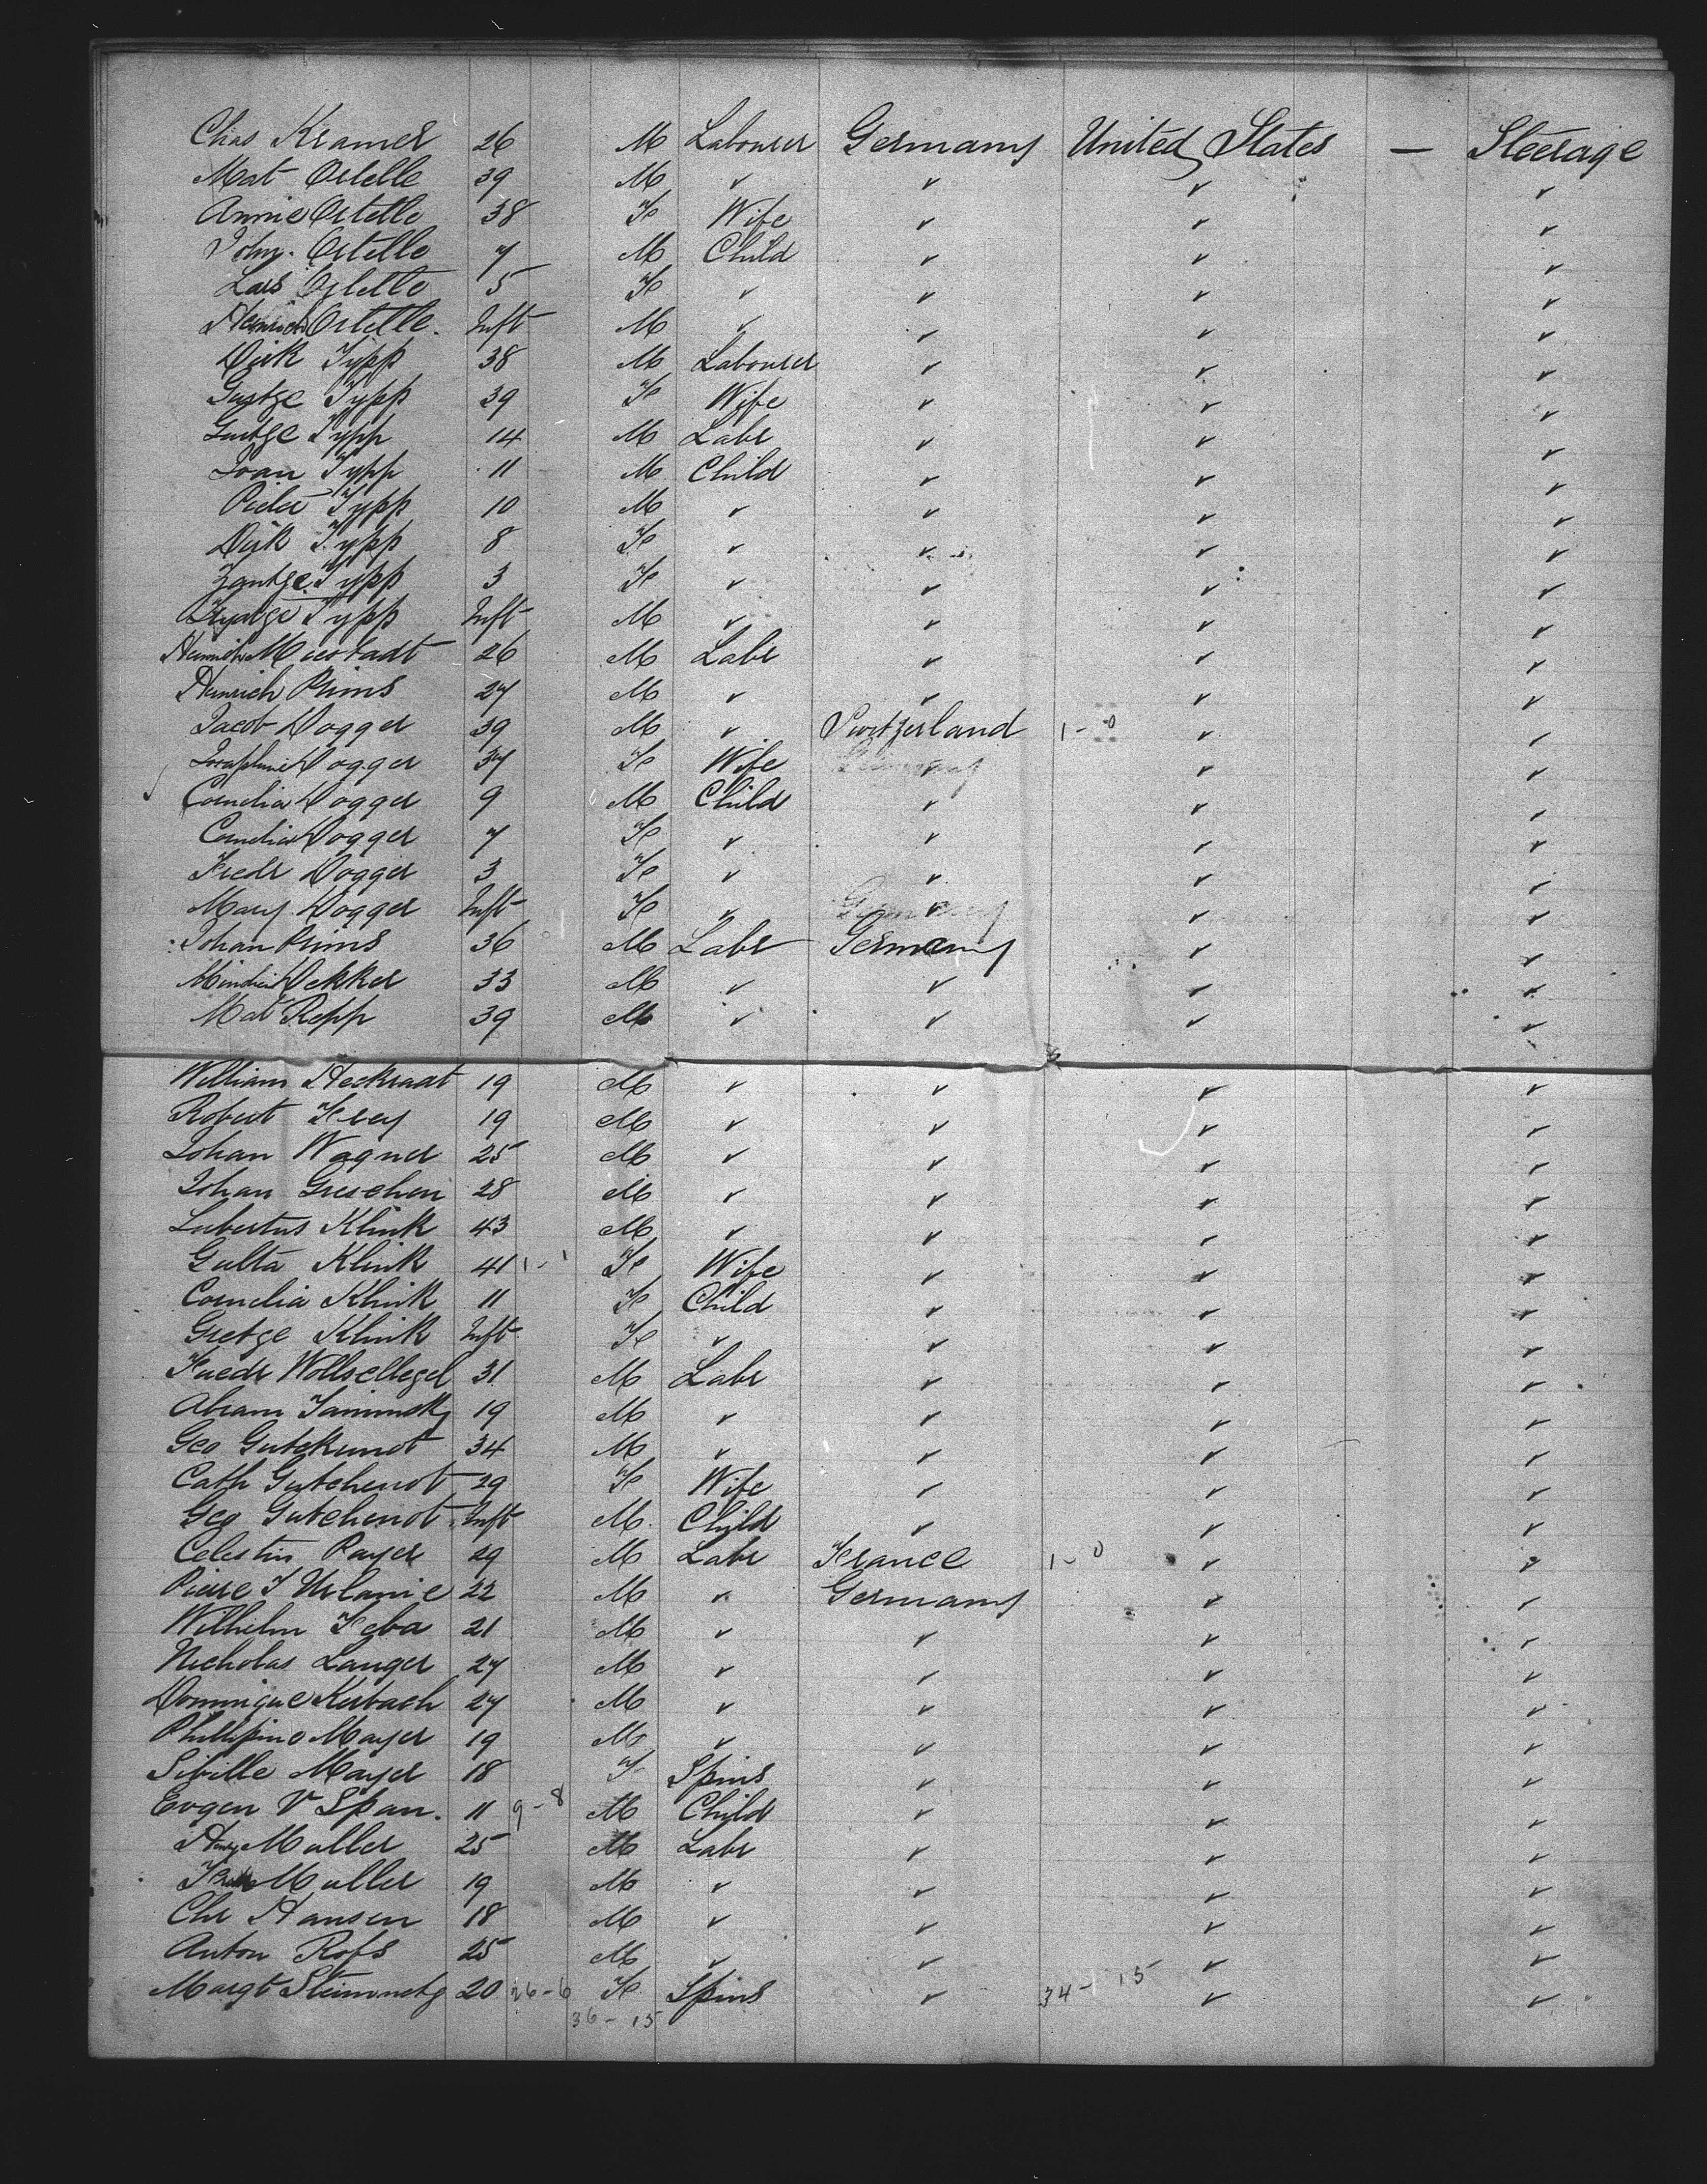 Chas Kramer 26 M Labourer Germany United States — Steerage
Mat Ostelle 39 M ✓ ✓ ✓ ✓
Annie Ostelle 38 F Wife ✓ ✓ ✓
John Ostelle 7 M Child ✓ ✓ ✓
Ostelle 5 F ✓ ✓ ✓ ✓
Heinrich Ostelle. Inft M ✓ ✓ ✓ ✓
Dirk Typp 38 M Labourer ✓ ✓ ✓
Typp 39 F Wife ✓ ✓ ✓
Typp 14 M Labr ✓ ✓ ✓
Typp 11 M Child ✓ ✓ ✓
Pieter Typp 10 M ✓ ✓ ✓ ✓
Dirk Typp 8 F ✓ ✓ ✓ ✓
Typp 3 F ✓ ✓ ✓ ✓
Typp Inft M ✓ ✓ ✓ ✓
Heinrich 26 M Labr ✓ ✓ ✓
Heinrich Prims 27 M ✓ ✓ ✓ ✓
Jacob Dogger 39 M ✓ Switzerland 1-0 ✓ ✓
Josephine Dogger 37 F Wife ✓ ✓ ✓
Cornelia Dogger 9 M Child ✓ ✓ ✓
Cornelia Dogger 7 F ✓ ✓ ✓ ✓
Fredr Dogger 3 F ✓ ✓ ✓ ✓
Mary Dogger Inft F ✓ ✓ ✓ ✓
Johan Prims 36 M Labr Germany ✓ ✓
Dekker 33 M ✓ ✓ ✓ ✓
Mat Repp 39 M ✓ ✓ ✓ ✓
William Heckraat 19 M ✓ ✓ ✓ ✓
Robert Frey 19 M ✓ ✓ ✓ ✓
Johan Wagner 25 M ✓ ✓ ✓ ✓
Johan Greschen 28 M ✓ ✓ ✓ ✓
Lubertus Klink 43 M ✓ ✓ ✓ ✓
Gulta Klink 41 1-1 F Wife ✓ ✓ ✓
Cornelia Klink 11 F Child ✓ ✓ ✓
Gretge Klink Inft F ✓ ✓ ✓ ✓
Fredr 31 M Labr ✓ ✓ ✓
Abram 19 M ✓ ✓ ✓ ✓
Geo Gutekunst 34 M ✓ ✓ ✓ ✓
Cath Gutchenot 29 F Wife ✓ ✓ ✓
Geo Gutchenot Inft M Child ✓ ✓ ✓
Celestin Payer 29 M Labr France 1-0 ✓ ✓
Pierre J Urlanie 22 M ✓ Germany ✓ ✓
Wilhelm Feba 21 M ✓ ✓ ✓ ✓
Nicholas Langer 27 M ✓ ✓ ✓ ✓
Dominique Kerbach 27 M ✓ ✓ ✓ ✓
Phillipino Mayer 19 M ✓ ✓ ✓ ✓
Siville Mayer 18 F Spins ✓ ✓ ✓
Eugen V Span. 11 9-8 M Child ✓ ✓ ✓
Muller 25 M Labr ✓ ✓ ✓
Muller 19 M ✓ ✓ ✓ ✓
Chr Hansen 18 M ✓ ✓ ✓ ✓
Anton Rofs 25 M ✓ ✓ ✓ ✓
Margt Steinmetz 20 26-6 F Spins ✓ 34-15 ✓ ✓
36-15